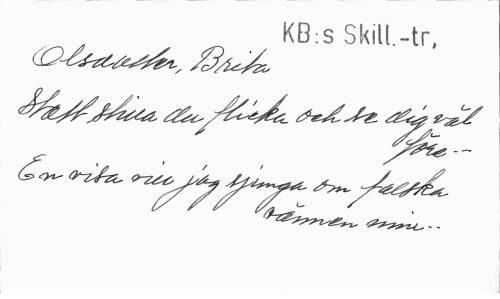 KB:s Skill.-tr,
Olsdotter, Brita
Statt stilla du flicka och se dig väl
före--
En visa vill jag sjunga om falska
vännen min--